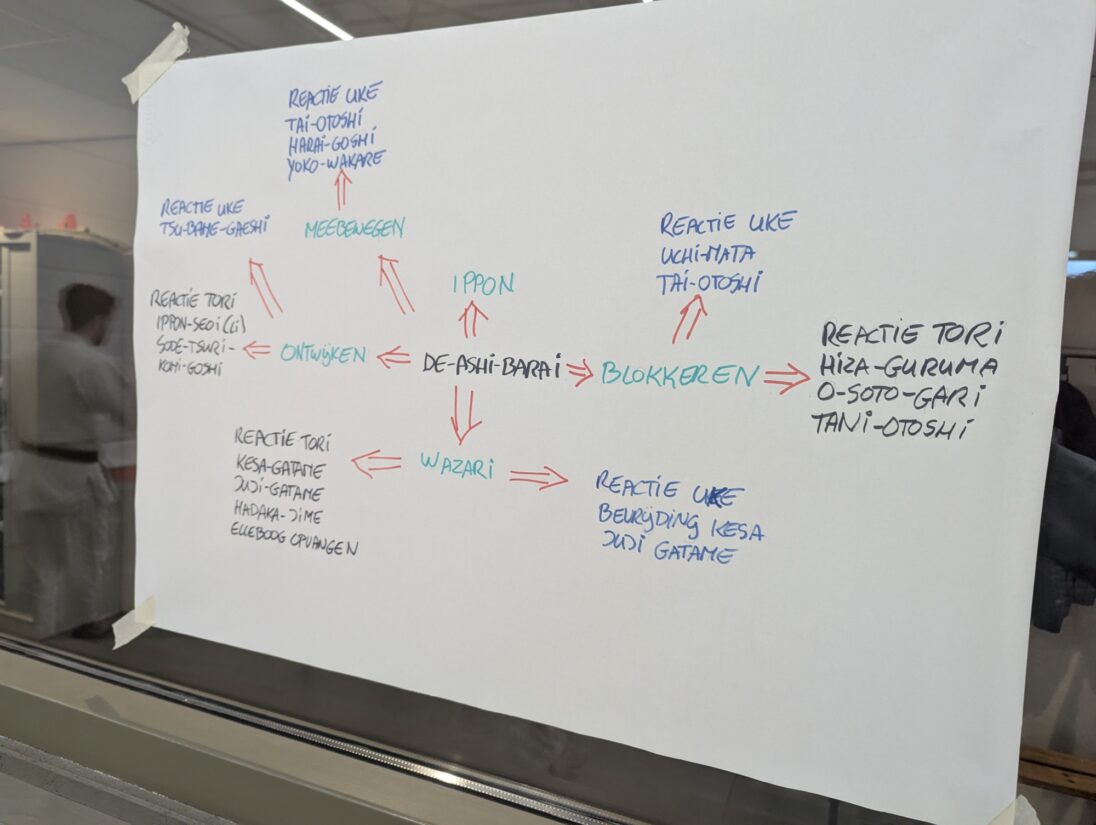 REACTIE UKE
TAI-OTOSHI
HARAI-GOSHI
YOKO-WAKARE
REACTIE UKE
TSU-BAME-GAESHI
MEEBEWEGEN
REACTIE UKE
UCHI-MATA
TAI-OTOSHI
IPPON
REACTIE TORI
IPPON-SEOI (LI)
SODE-TSURI-
KOMI-GOSHI
ONTWIJKEN
DE-ASHI-BARAI
BLOKKEREN
REACTIE TORI
HIZA-GURUMA
O-SOTO-GARI
TANI-OTOSHI
REACTIE TORI
KESA-GATAME
JUJI-GATAME
HADAKA-JIME
ELLEBOOG OPVANGEN
WAZARI
REACTIE UKE
BEVRIJDING KESA
JUJI GATAME